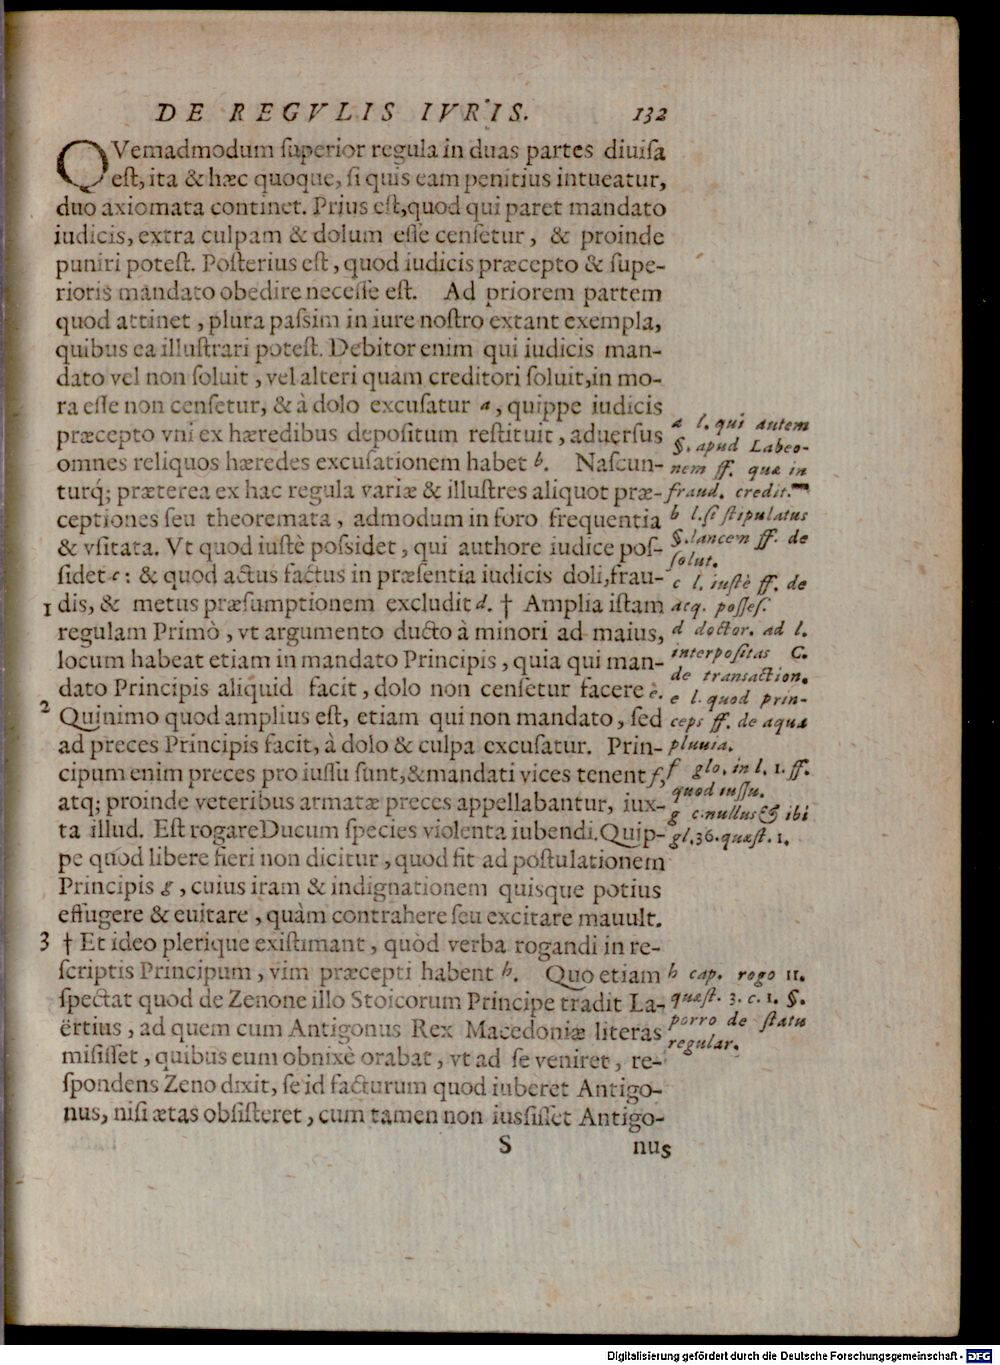 DE REGVLIS IVRIS. 132
QVemadmodum ſuperior regula in duas partes diuiſa
eſt, ita & hæc quoque, ſi quis eam penitius intueatur,
duo axiomata continet. Prius eſt, quod qui paret mandato
iudicis, extra culpam & dolum eſſe cenſetur, & proinde
puniri poteſt. Poſterius eſt, quod iudicis præcepto & ſupe-
rioris mandato obedire neceſſe eſt. Ad priorem partem
quod attinet, plura paſsim in iure noſtro extant exempla,
quibus ea illuſtrari poteſt. Debitor enim qui iudicis man-
dato vel non ſoluit, vel alteri quàm creditori ſoluit, in mo-
ra eſſe non cenſetur, & à dolo excuſatur a, quippe iudicis
præcepto vni ex hæredibus depoſitum reſtituit, aduerſus
omnes reliquos hæredes excuſationem habet b. Naſcun-
turq́; præterea ex hac regula variæ & illuſtres aliquot præ-
ceptiones ſeu theoremata, admodum in foro frequentia
& vſitata. Vt quod iuſtè poſsidet, qui authore iudice poſ-
ſidet c: & quod actus factus in præſentia iudicis doli, frau-
1 dis, & metus præſumptionem excludit d. † Amplia iſtam
regulam Primò, vt argumento ducto à minori ad maius,
locum habeat etiam in mandato Principis, quia qui man-
dato Principis aliquid facit, dolo non cenſetur facere e.
2 Quinimo quod amplius eſt, etiam qui non mandato, ſed
ad preces Principis facit, à dolo & culpa excuſatur. Prin-
cipum enim preces pro iuſſu ſunt, & mandati vices tenent f,
atq; proinde veteribus armatæ preces appellabantur, iux-
ta illud. Eſt rogare Ducum ſpecies violenta iubendi. Quip-
pe quod libere fieri non dicitur, quod fit ad poſtulationem
Principis g, cuius iram & indignationem quisque potius
effugere & euitare, quàm contrahere ſeu excitare mauult.
3 † Et ideo plerique exiſtimant, quòd verba rogandi in re-
ſcriptis Principum, vim præcepti habent h. Quo etiam
ſpectat quod de Zenone illo Stoicorum Principe tradit La-
ërtius, ad quem cum Antigonus Rex Macedoniæ literas
miſiſſet, quibus eum obnixè orabat, vt ad ſe veniret, re-
ſpondens Zeno dixit, ſe id facturum quod iuberet Antigo-
nus, niſi ætas obſiſteret, cum tamen non iuſsiſſet Antigo-
S nus
a l. qui autem
§. apud Labeo-
nem ff. quæ in
fraud. credit.
b l. ſi ſtipulatus
§. lancem ff. de
ſolut.
c l. iuſtè ff. de
acq. poſſeſ.
d doctor. ad l.
interpoſitas C.
de transaction.
e l. quod prin-
ceps ff. de aqua
pluuia.
f glo. in l. 1. ff.
quod iuſſu.
g c. nullus & ibi
gl. 36. quæſt. 1.
h cap. rogo 11.
quæſt. 3. c. 1. §.
porro de ſtatu
regular.
Digitalisierung gefördert durch die Deutsche Forschungsgemeinschaft - DFG